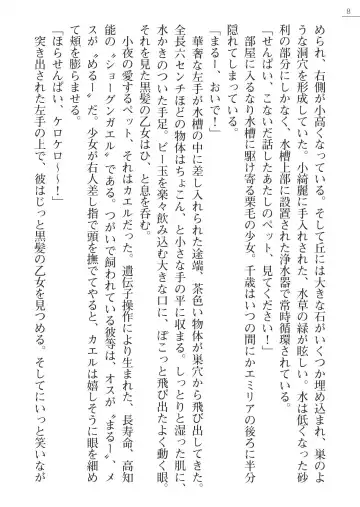 8
められ、右側が小高くなっている。そして丘には大きな石がいくつか埋め込まれ、巣のよ
うな洞穴を形成していた。小綺麗に手入れされた、水草の緑が眩しい。水は低くなった砂
利の部分にしかなく、水槽上部に設置された浄水器で常時循環されている。
「せんぱい、こないだ話したあたしのペット、見てください！」
部屋に入るなり水槽に駆け寄る栗毛の少女。千歳はいつの間にかエミリアの後ろに半分
隠れてしまっている。
「まるー、おいで！」
華奢な左手が水槽の中に差し入れられた途端、茶色い物体が巣穴から飛び出してきた。
全長六センチほどの物体はちょこん、と小さな手の平に収まる。しっとりと湿った肌に、
水かきのついた手足。ビー玉を楽々飲み込む大きな口に、ぽこっと飛び出たよく動く眼。
それを見た黒髪の乙女はひ、と息を呑む。
小夜の愛するペット、それはカエルだった。遺伝子操作により生まれた、長寿命、高知
能の〝ショーグンガエル〟。つがいで飼われている彼等は、オスが〝まるー〟、メ
スが〝めるー〟だ。少女が右人差し指で頭を撫でてやると、カエルは嬉しそうに眼を細め
て頬を膨らませる。
「ほらせんぱい、ケロケロ～～！」
突き出された左手の上で、彼はじっと黒髪の乙女を見つめる。そしてにいっと笑いなが